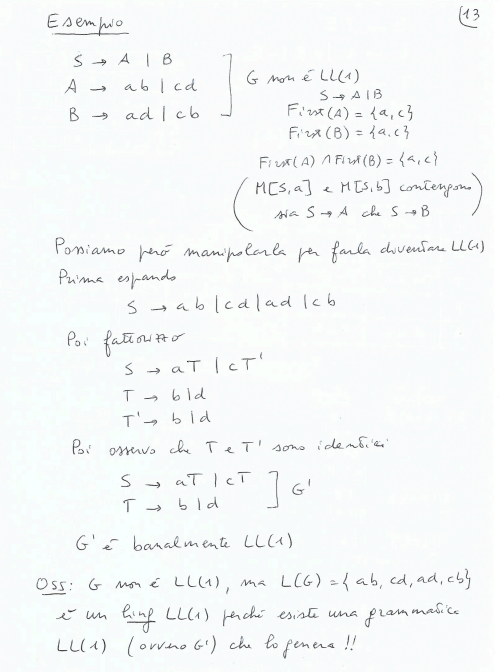 Esempio
(13
S → A | B
A → ab | cd
B → ad | cb
G non é LL(1)
S → A | B
First(A) = {a,c}
First(B) = {a,c}
First(A) ∩ First(B) = {a,c}
(M[S,a] e M[S,b] contengono
sia S → A che S → B)
Possiamo peró manipolarla per farla diventare LL(1)
Prima espando
S → ab | cd | ad | cb
Poi fattorizzo
S → aT | cT'
T → b | d
T' → b | d
Poi osservo che T e T' sono identici
S → aT | cT
T → b | d
] G'
G' é banalmente LL(1)
Oss: G non é LL(1), ma L(G) = {ab, cd, ad, cb}
é un ling LL(1) perché esiste una grammatica
LL(1) (ovvero G') che lo genera !!